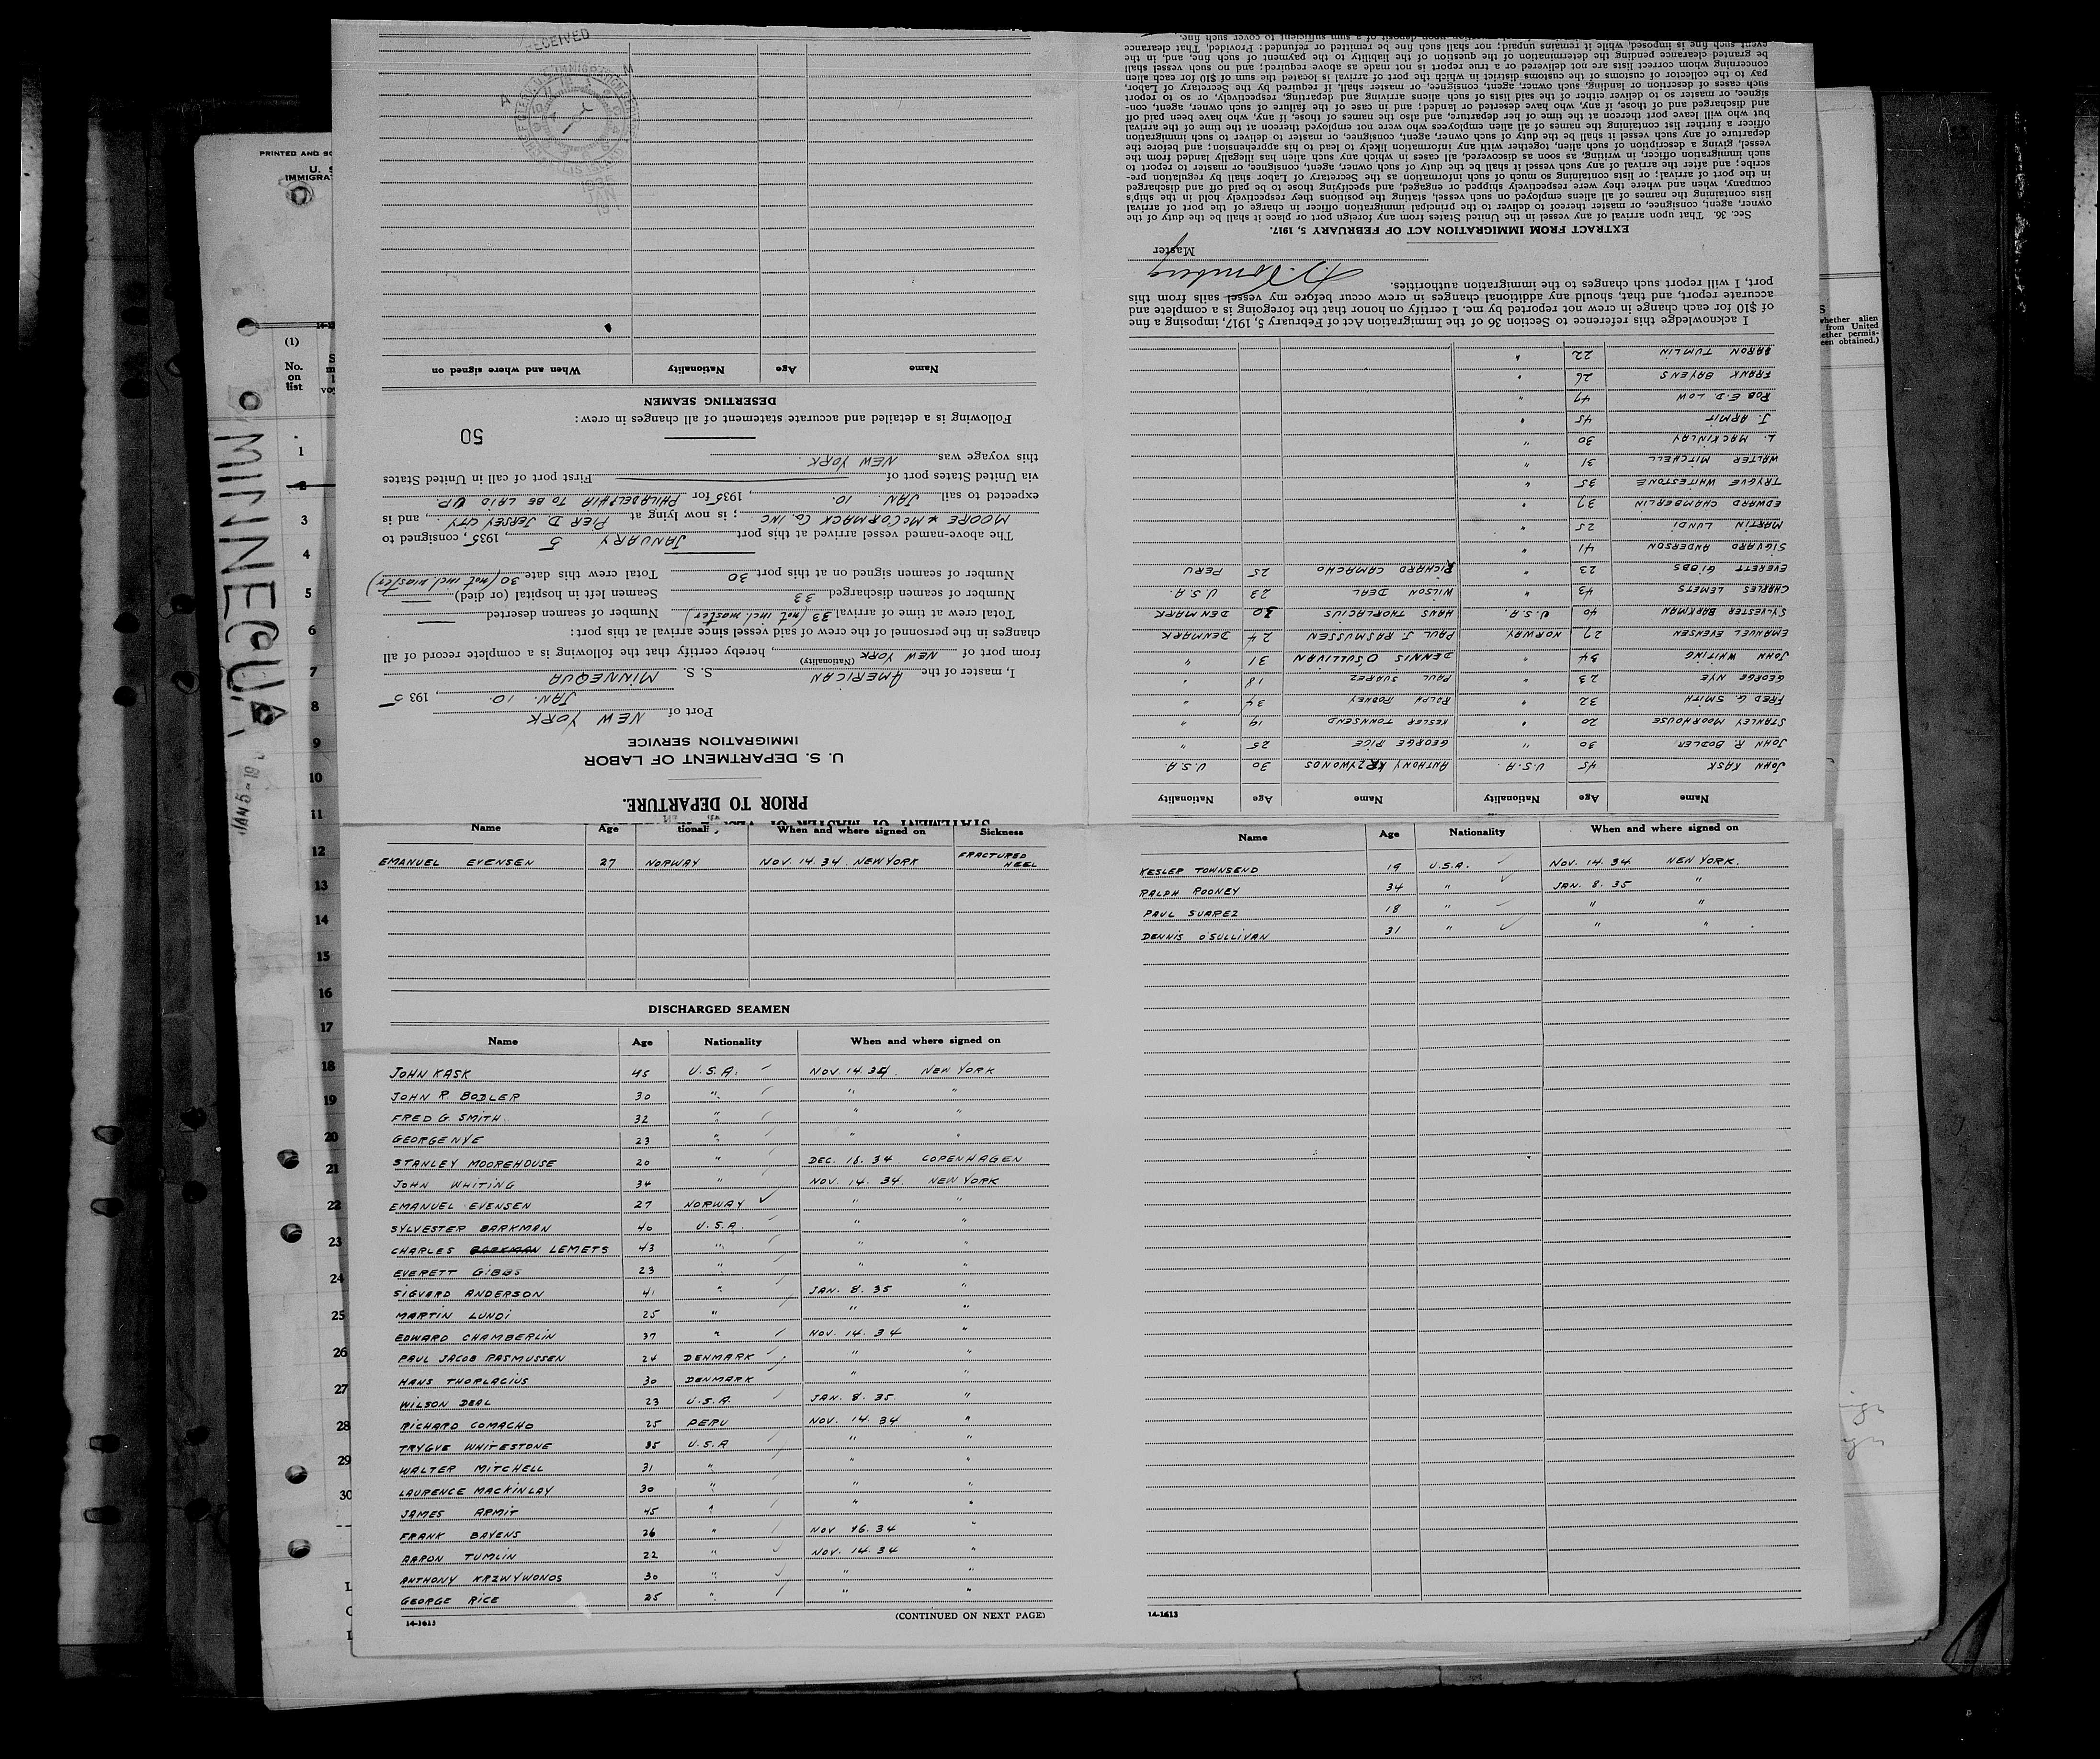 PRINTED AND SO
U. S
IMMIGRAT
(1)
No.
on
list
MINNEQUA
1
2
3
4
5
6
7
8
9
10
11
12
13
14
15
16
17
18
19
20
21
22
23
24
25
26
27
28
29
30
whether alien
from United
ether permis-
een obtained.)
PRIOR TO DEPARTURE.
U. S. DEPARTMENT OF LABOR
IMMIGRATION SERVICE
Port of NEW YORK
JAN. 10, 1935
I, master of the AMERICAN S. S. MINNEQUA
(Nationality)
from port of NEW YORK, hereby certify that the following is a complete record of all
changes in the personnel of the crew of said vessel since arrival at this port:
Total crew at time of arrival 33 (not incl. master) Number of seamen deserted
Number of seamen discharged 33 Seamen left in hospital (or died)
Number of seamen signed on at this port 30 Total crew this date 30 (not incl. master)
The above-named vessel arrived at this port JANUARY 5, 1935, consigned to
MOORE & McCORMACK CO. INC; is now lying at PIER D. JERSEY CITY, and is
expected to sail JAN. 10., 1935 for PHILADELPHIA TO BE LAID UP.
via United States port of First port of call in United States
this voyage was NEW YORK.
50
Following is a detailed and accurate statement of all changes in crew:
DESERTING SEAMEN
Name Age Nationality When and where signed on
RECEIVED
Name Age Nationality Name Age Nationality
JOHN KASK 45 U.S.A. ANTHONY KRZYWONOS 30 U.S.A.
JOHN R. BODLER 30 " GEORGE RICE 25 "
STANLEY MOORHOUSE 20 " KESLER TOWNSEND 19 "
FRED G. SMITH 32 " RALPH ROONEY 34 "
GEORGE NYE 23 " PAUL SUAREZ 18 "
JOHN WHITING 34 " DENNIS O'SULLIVAN 31 "
EMANUEL EVENSEN 27 NORWAY PAUL J. RASMUSSEN 24 DENMARK
SYLVESTER BARKMAN 40 U.S.A. HANS THORLACIUS 30 DENMARK
CHARLES LEMETS 43 " WILSON DEAL 23 U.S.A.
EVERETT GIBBS 23 " RICHARD CAMACHO 25 PERU
SIGVARD ANDERSON 41 "
MARTIN LUNDI 25 "
EDWARD CHAMBERLIN 37 "
TRYGVE WHITESTONE 35 "
WALTER MITCHELL 31 "
L. MACKINLAY 30 "
J. ARMIT 45 "
ROB E. D. LOW 47 "
FRANK BAYENS 26 "
AARON TUMLIN 22 "
I acknowledge this reference to Section 36 of the Immigration Act of February 5, 1917, imposing a fine
of $10 for each change in crew not reported by me. I certify on honor that the foregoing is a complete and
accurate report, and that, should any additional changes in crew occur before my vessel sails from this
port, I will report such changes to the immigration authorities.
Master
EXTRACT FROM IMMIGRATION ACT OF FEBRUARY 5, 1917.
Sec. 36. That upon arrival of any vessel in the United States from any foreign port or place it shall be the duty of the
owner, agent, consignee, or master thereof to deliver to the principal immigration officer in charge of the port of arrival
lists containing the names of all aliens employed on such vessel, stating the positions they respectively hold in the ship's
company, when and where they were respectively shipped or engaged, and specifying those to be paid off and discharged
in the port of arrival; or lists containing so much of such information as the Secretary of Labor shall by regulation pre-
scribe; and after the arrival of any such vessel it shall be the duty of such owner, agent, consignee, or master to report to
such immigration officer, in writing, as soon as discovered, all cases in which any such alien has illegally landed from the
vessel, giving a description of such alien, together with any information likely to lead to his apprehension; and before the
departure of any such vessel it shall be the duty of such owner, agent, consignee, or master to deliver to such immigration
officer a further list containing the names of all alien employees who were not employed thereon at the time of the arrival
but who will leave port thereon at the time of her departure, and also the names of those, if any, who have been paid off
and discharged and of those, if any, who have deserted or landed; and in case of the failure of such owner, agent, con-
signee, or master so to deliver either of the said lists of such aliens arriving and departing, respectively, or so to report
such cases of desertion or landing, such owner, agent, consignee, or master shall, if required by the Secretary of Labor,
pay to the collector of customs of the customs district in which the port of arrival is located the sum of $10 for each alien
concerning whom correct lists are not delivered or a true report is not made as above required; and no such vessel shall
be granted clearance pending the determination of the question of the liability to the payment of such fine, and, in the
event such fine is imposed, while it remains unpaid; nor shall such fine be remitted or refunded: Provided, That clearance
upon deposit of a sum sufficient to cover such fine.
Name Age When and where signed on Sickness
EMANUEL EVENSEN 27 NORWAY NOV. 14. 34. NEW YORK FRACTURED HEEL
DISCHARGED SEAMEN
Name Age Nationality When and where signed on
JOHN KASK 45 U.S.A. NOV. 14. 34. NEW YORK
JOHN R BODLER 30 " " "
FRED G. SMITH 32 " " "
GEORGE NYE 23 " " "
STANLEY MOOREHOUSE 20 " DEC. 18. 34 COPENHAGEN
JOHN WHITING 34 " NOV. 14. 34. NEW YORK
EMANUEL EVENSEN 27 NORWAY " "
SYLVESTER BARKMAN 40 U.S.A. " "
CHARLES BARKMAN LEMETS 43 " " "
EVERETT GIBBS 23 " " "
SIGVARD ANDERSON 41 " JAN. 8. 35 "
MARTIN LUNDI 25 " " "
EDWARD CHAMBERLIN 37 " NOV. 14. 34 "
PAUL JACOB RASMUSSEN 24 DENMARK " "
HANS THORLACIUS 30 DENMARK " "
WILSON DEAL 23 U.S.A. JAN. 8. 35. "
RICHARD COMACHO 25 PERU NOV. 14. 34 "
TRYGVE WHITESTONE 35 U.S.A " "
WALTER MITCHELL 31 " " "
LAURENCE MACKINLAY 30 " "
JAMES ARMIT 45 " " "
FRANK BAYENS 26 " NOV 16. 34 "
AARON TUMLIN 22 " NOV. 14. 34 "
ANTHONY KRZWYWONOS 30 " " "
GEORGE RICE 25 " " "
14-1613 (CONTINUED ON NEXT PAGE)
Name Age Nationality When and where signed on
KESLER TOWNSEND 19 U.S.A. NOV. 14. 34 NEW YORK.
RALPH ROONEY 34 " JAN. 8. 35 "
PAUL SUAREZ 18 " " "
DENNIS O'SULLIVAN 31 " " "
14-1613